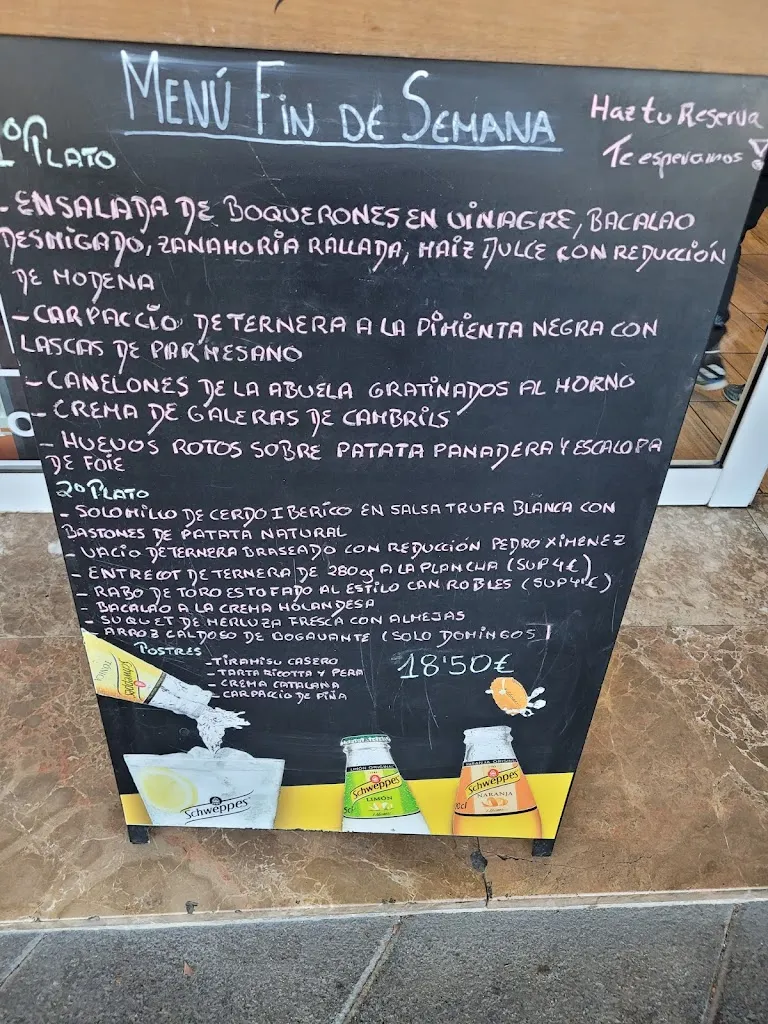 MENÚ FIN DE SEMANA
Haz tu Reserva
Te esperamos!
1º PLATO
- ENSALADA DE BOQUERONES EN VINAGRE, BACALAO
DESMIGADO, ZANAHORIA RALLADA, MAIZ DULCE CON REDUCCIÓN
DE MODENA
- CARPACCIO DE TERNERA A LA PIMIENTA NEGRA CON
LASCAS DE PARMESANO
- CANELONES DE LA ABUELA GRATINADOS AL HORNO
- CREMA DE GALERAS DE CAMBRILS
- HUEVOS ROTOS SOBRE PATATA PANADERA Y ESCALOPA
DE FOIE
2º PLATO
- SOLOMILLO DE CERDO IBERICO EN SALSA TRUFA BLANCA CON
BASTONES DE PATATA NATURAL
- VACIO DE TERNERA BRASEADO CON REDUCCIÓN PEDRO XIMENEZ
- ENTRECOT DE TERNERA DE 280gr A LA PLANCHA (SUP 4€)
- RABO DE TORO ESTOFADO AL ESTILO CAN ROBLES (SUP 4€)
- BACALAO A LA CREMA HOLANDESA
- SUQUET DE MERLUZA FRESCA CON ALMEJAS
- ARROZ CALDOSO DE BOGAVANTE (SOLO DOMINGOS)
POSTRES
- TIRAMISU CASERO
- TARTA RICOTTA Y PERA
- CREMA CATALANA
- CARPACCIO DE PIÑA
18'50€
TÓNICA
Schweppes
Schweppes
LIMÓN ORIGINAL
Schweppes
LIMÓN
NARANJA ORIGINAL
Schweppes
NARANJA